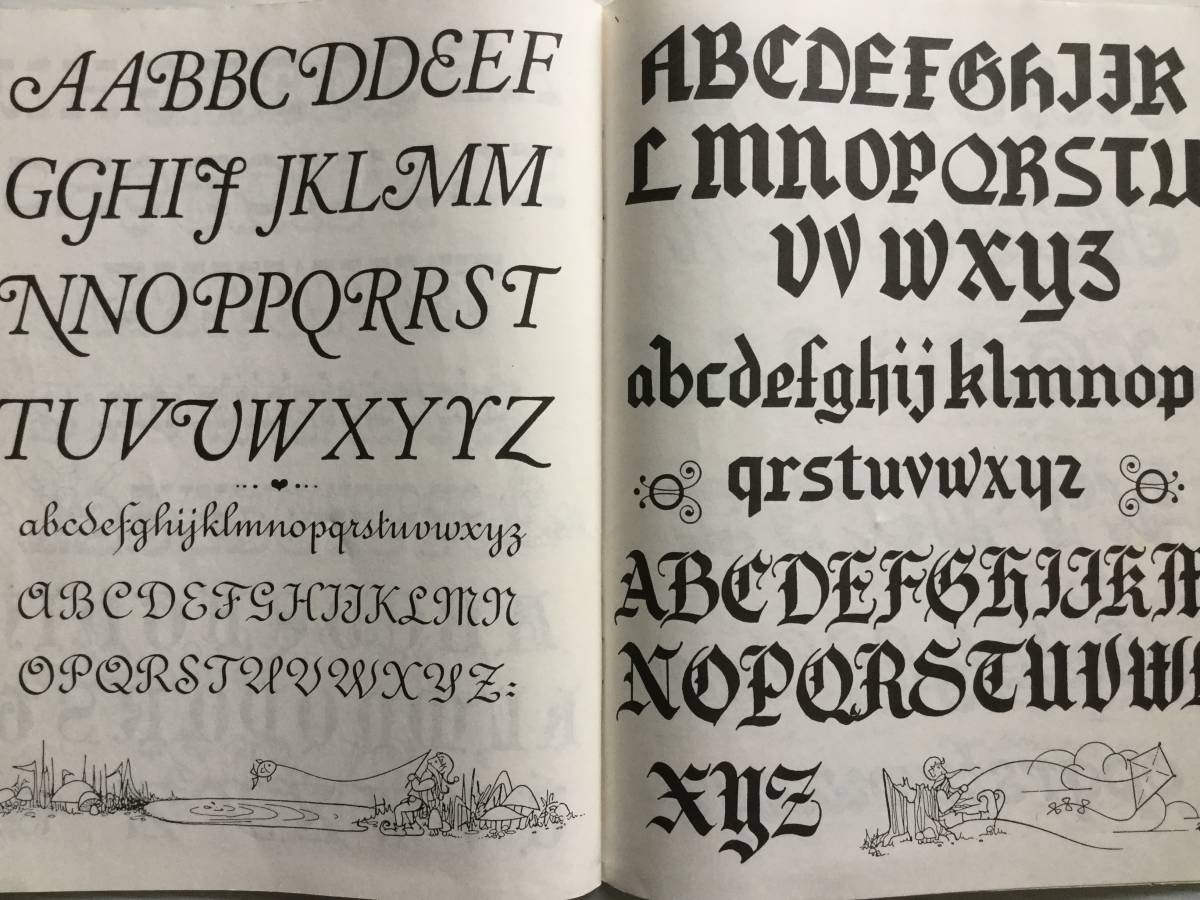 AABBCDDEEF
GGHIJ JKLMM
NNOPPQRRST
TUVUWXYYZ
abcdefghijklmnopqrstuvwxyz
ABCDEFGHIJKLMN
OPQRSTUVWXYZ:
ABCDEFGhIJR
LMNOPQRSTU
VVWXYZ
abcdefghijklmnop
qrstuvwxyz
ABCDEFGHIJKM
NOPQRSTUVW
XYZ